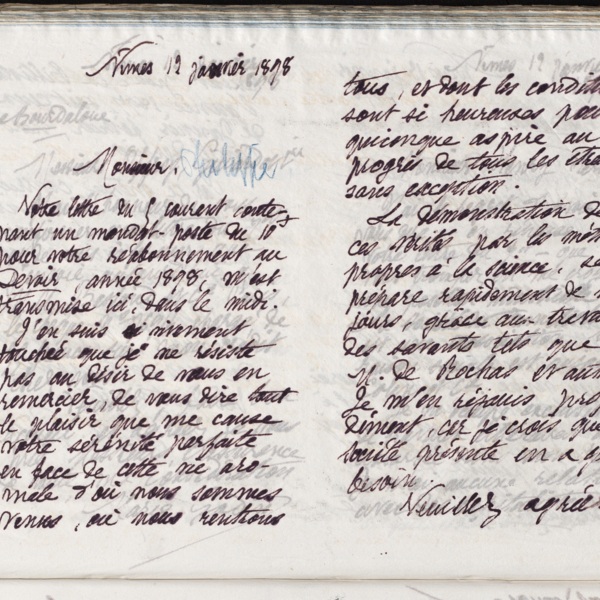 Nimes 12 janvier 1898
Monsieur,
Votre lettre du 5 courant conte-
nant un mandat-poste de 10f
pour votre réabonnement au
Devoir, année 1898, m'est
transmise ici, dans le midi.
J'en suis si vivement
touchée que je ne résiste
pas au désir de vous en
remercier, de vous dire tout
le plaisir que me cause
votre sérénité parfaite
en face de cette vie aro-
male d'où nous sommes
venus, où nous rentrons
tous, et dont les condit
sont si heureuses pou
quiconque aspire au
progrès de tous les êtres
sans exception.
La démonstration de
ces vérités par la mét
propres à la science, se
prépare rapidement de n
jours, grâce aux trava
des savants tels que
M. de Rochas et aut
Je m'en réjouis pro
dément, car je crois que
société présente en a g
besoin.
Veuillez agrée